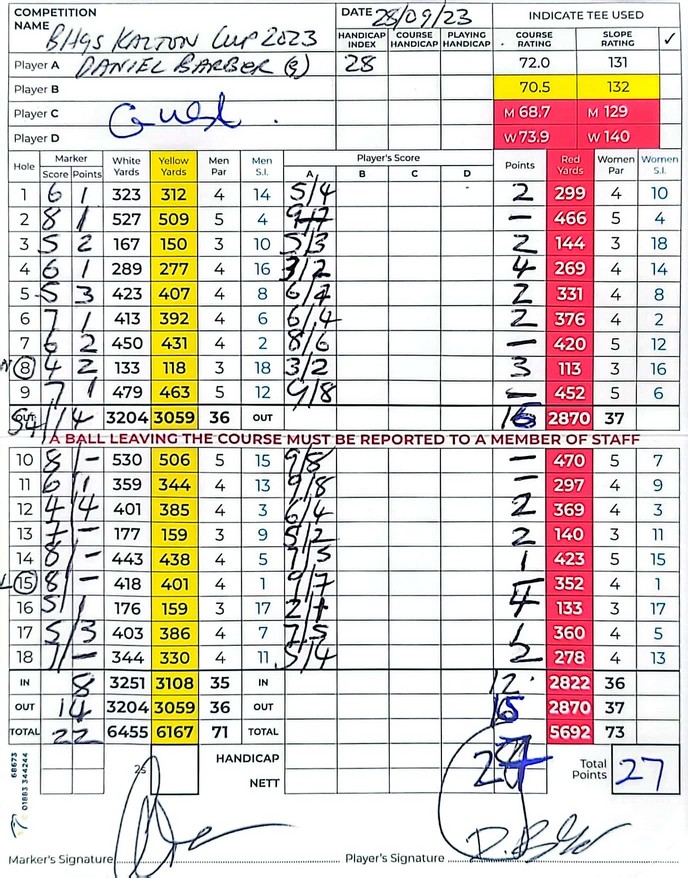 COMPETITION NAME BHGS KALTON CUP 2023 DATE 28/09/23 INDICATE TEE USED
HANDICAP INDEX COURSE HANDICAP PLAYING HANDICAP COURSE RATING SLOPE RATING ✓
Player A DANIEL BARBER (G) 28 72.0 131
Player B 70.5 132
Player C Guest. M 68.7 M 129
Player D W 73.9 W 140
Hole Marker Score Points White Yards Yellow Yards Men Par Men S.I. Player's Score A B C D Points Red Yards Women Par Women S.I.
1 6 1 323 312 4 14 5/4 2 299 4 10
2 8 1 527 509 5 4 – 466 5 4
3 5 2 167 150 3 10 5/3 2 144 3 18
4 6 1 289 277 4 16 3/2 4 269 4 14
5 5 3 423 407 4 8 2 331 4 8
6 7 1 413 392 4 6 6/4 2 376 4 2
7 6 2 450 431 4 2 8/6 – 420 5 12
8 4 2 133 118 3 18 3/2 3 113 3 16
9 7 1 479 463 5 12 9/8 – 452 5 6
OUT 54/14 3204 3059 36 OUT 15 2870 37
A BALL LEAVING THE COURSE MUST BE REPORTED TO A MEMBER OF STAFF
10 8 – 530 506 5 15 9/8 – 470 5 7
11 6 1 359 344 4 13 9/8 – 297 4 9
12 4 4 401 385 4 3 6/4 2 369 4 3
13 7 – 177 159 3 9 5/2 2 140 3 11
14 8 – 443 438 4 5 7/5 1 423 5 15
15 8 – 418 401 4 1 9/7 – 352 4 1
16 5 1 176 159 3 17 2/1 4 133 3 17
17 5 3 403 386 4 7 7/5 1 360 4 5
18 7 – 344 330 4 11 5/4 2 278 4 13
IN 8 3251 3108 35 IN 12 2822 36
OUT 14 3204 3059 36 OUT 15 2870 37
TOTAL 22 6455 6167 71 TOTAL 27 5692 73
25 HANDICAP
NETT Total Points 27
68673
01883 344244
Marker's Signature Player's Signature